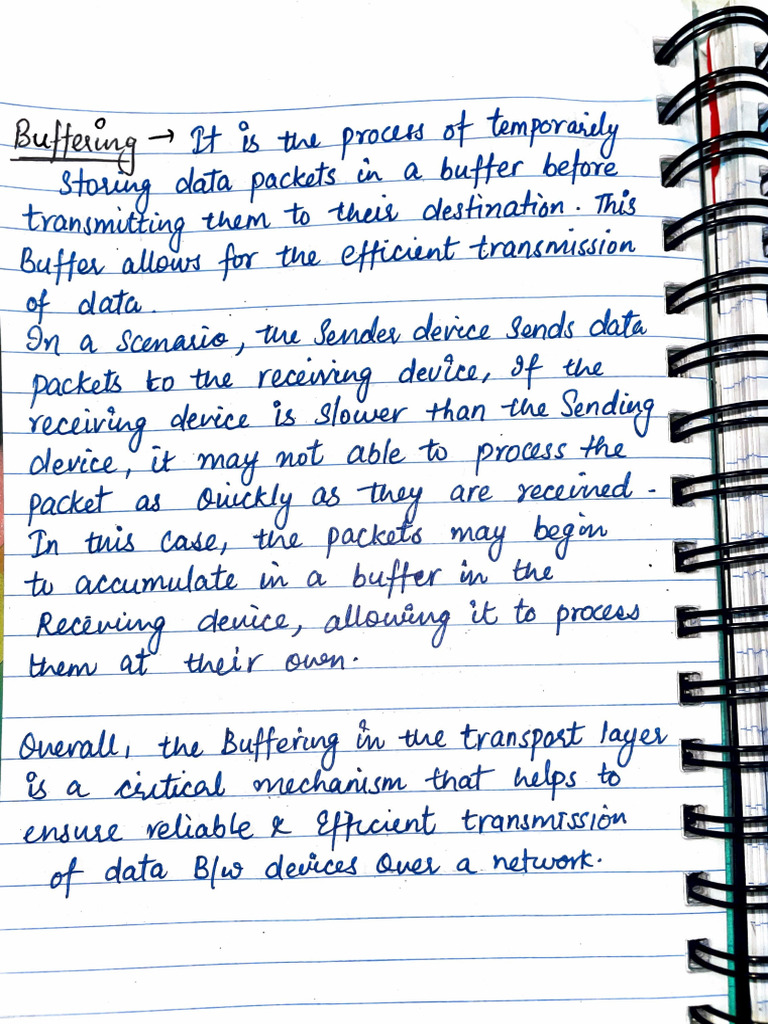 Buffering → It is the process of temporarily
storing data packets in a buffer before
transmitting them to their destination. This
Buffer allows for the efficient transmission
of data.
In a scenario, the sender device sends data
packets to the receiving device, If the
receiving device is slower than the Sending
device, it may not able to process the
packet as Quickly as they are received.
In this case, the packets may begin
to accumulate in a buffer in the
Receiving device, allowing it to process
them at their own.
Overall, the Buffering in the transport layer
is a critical mechanism that helps to
ensure reliable & Efficient transmission
of data B/w devices Over a network.